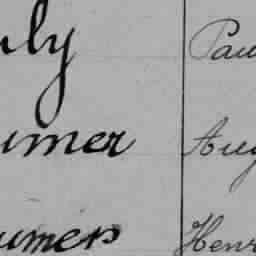 uly Pau
umer Aug
umer Henr